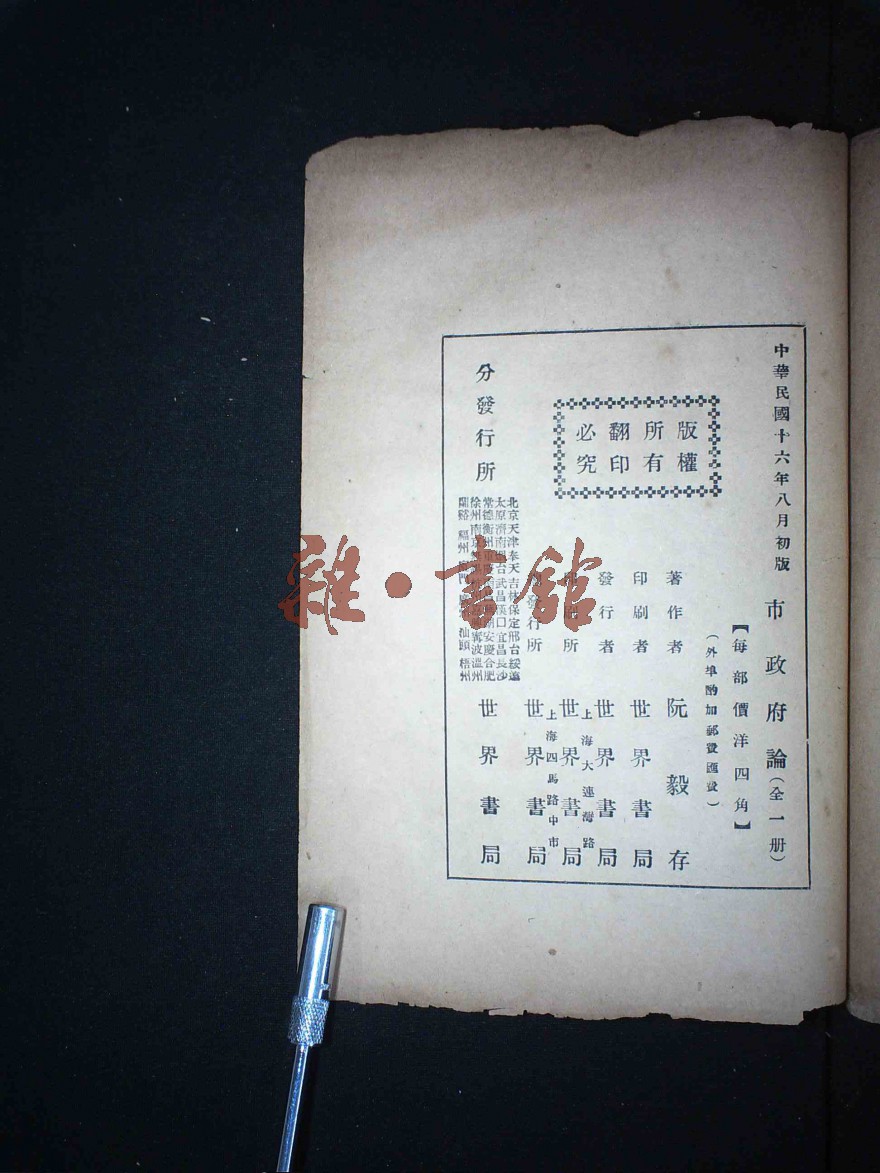 中華民國十六年八月初版
市政府論(全一册)
【每部價洋四角】
(外埠酌加郵費匯費)
版權
所有
翻印
必究
著作者 阮毅存
印刷者 世界書局
發行者 世界書局
上海大連灣路
印刷所 世界書局
上海四馬路中市
發行所 世界書局
分發行所
北京天津奉天吉林保定邢台綏遠
太原濟南烟台武昌漢口宜昌長沙
常德衡州 安慶合肥
徐州南京 寧波溫州
蘭谿 福州 汕頭 梧州
世界書局
雜·書館